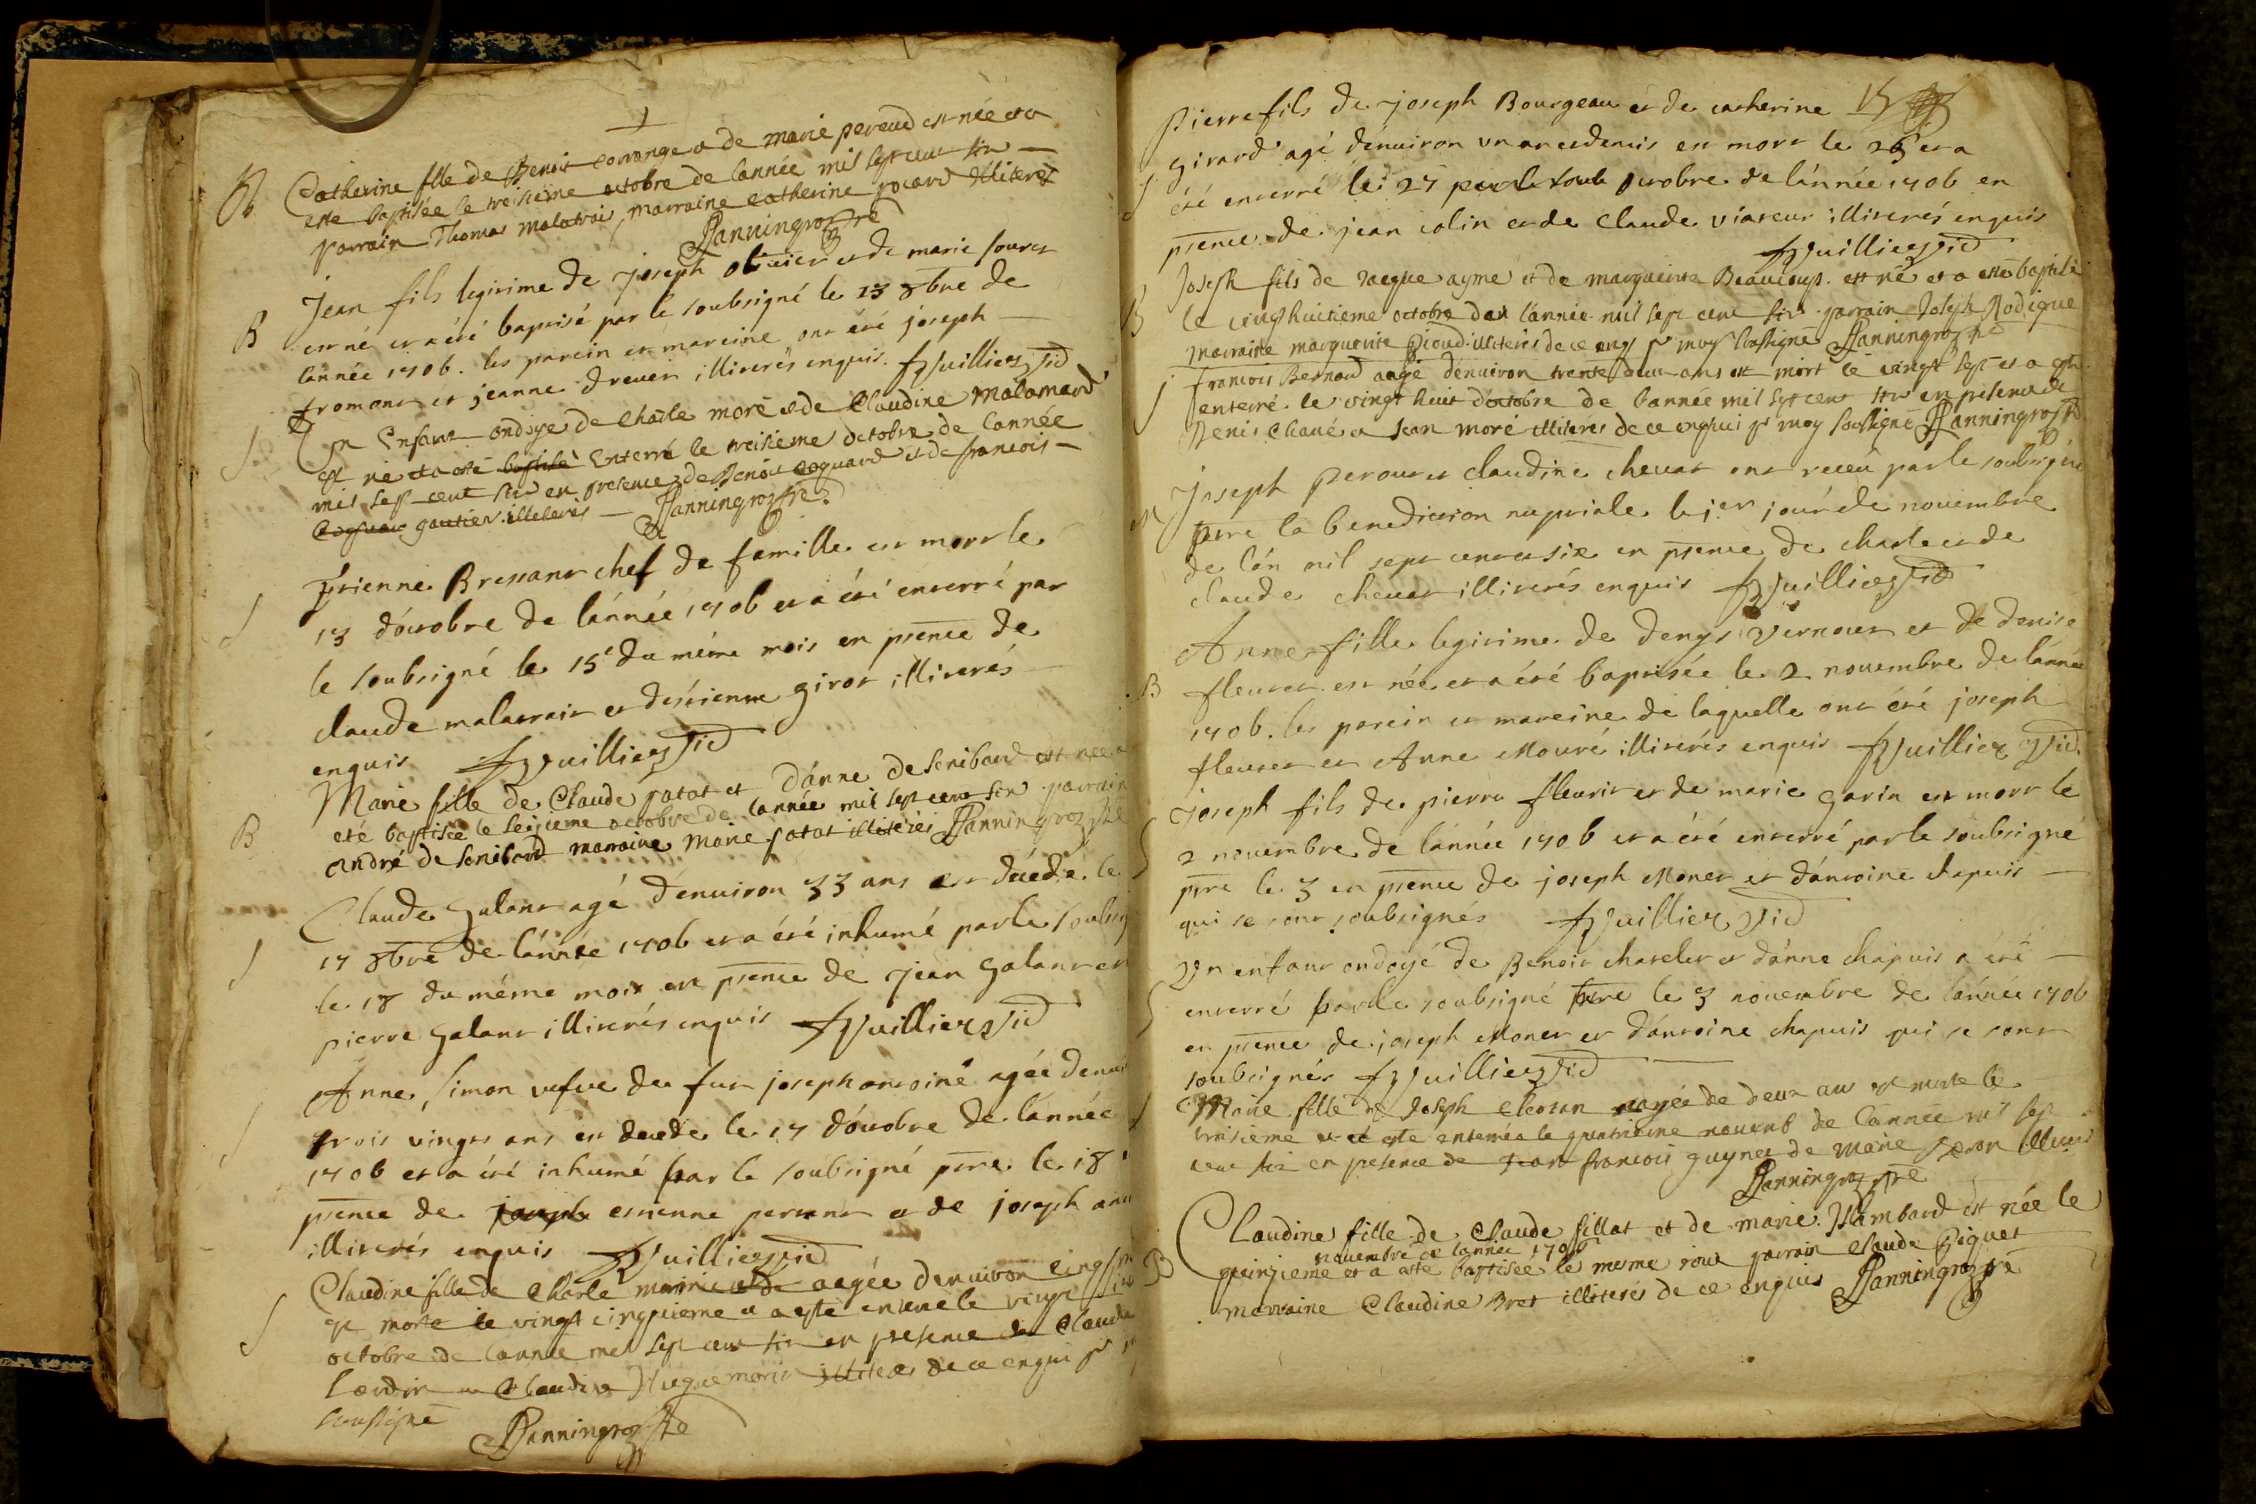 B Catherine fille de Benoit corange et de marie peraud est née et a
este baptisée le treisieme octobre de lannée mil sept cent six
parrain Thomas malatrais, marraine catherine pocard illiteres
Janningros pre
Jean fils legitime de joseph olivier et de marie fourer
B est né et a été baptisé par le soubsigné le 13 8bre de
lannée 1706. les parein et mareine ont été joseph
fromont et jeanne drevet illiterés enquis. fJvuilliez vic
S Un Enfant ondoye de Charle moré et de Claudine Malamard
est né et a esté baptisé Enterré le treisieme octobre de lannée
mil sept cent six en presence de Benoit coquard et de francois
Coquard gautier illeterés Janningros pre
Etienne Bressant chef de famille est mort le
S 13 d'octobre de l'année 1706 et a été enterré par
le soubsigné le 15e du méme mois en psence de
claude malatrait et d'estienne girot illiterés
enquis fJvuilliez vic
Marie fille de Claude patat et d'anne de senibard est née
B eté baptisée le seizieme octobre de lannée mil sept cent six parrain
andré de senibard marraine marie patat illiteres Janningros pre
Claude galant agé d'environ 33 ans est décédé le
S 17 8bre de l'année 1706 et a été inhumé par le soubsig
le 18 du méme mois en psence de jean galant et
pierre galant illiterés enquis fJvuilliez vic
Anne Simon vefve de fut joseph antoine agée denvi
S trois vingts ans est decede le 17 d'octobre de l'année
1706 et a été inhumé par le soubsigné ptre le 18
psence de joseph estienne persant et de joseph an
illiterés enquis fJvuilliez vic
Claudine fille de Charle morin et de aagée denviron cinq
S est morte le vingt cinquieme et a esté enterré le vingt six
octobre de lannée mil sept cent six en presence de Claude
Lardin et Claudine Hugue morin illiteres de ce enqui pr
soussigné Janningros pre
Pierre fils de joseph Bourgeau et de catherine 15
girard agé d'environ un an et demis est mort le 26 et a
S été enterré le 27 octobre de l'année 1706 en
psence de jean colin et de claude viateur illiterés enquis
fJvuilliez vic
Joseph fils de jacque ayme et de marguerite Beaucoup est né et a esté baptisé
B le vingt huitieme octobre de lannée mil sept cent six parrain Joseph Rodigue
marraine marguerite Pioud illiteres de ce enq pr moy soussigné Janningros pre
S francois Bernard aagé denviron trente deux ans est mort le vingt sept et a esté
enterré le vingt huit doctobre de lannée mil sept cent six en presence de
Denis Clavé et Jean moré illiteres de ce enquis pr moy soussigné Janningros pre
M Joseph perour et claudine chevat ont receu par le soubsigné
ptre la benediction nuptiale le jer jour de novembre
de l'an mil sept cent et six en psence de charle et de
claude chevat illiterés enquis fJvuilliez vic
Anne fille legitime de denys vernouet et de denise
B fleuret est née et a été baptisée le 2 novembre de l'année
1706. les parein et mareine de laquelle ont été joseph
fleuret et Anne Mouré illiterés enquis fJvuilliez vic
Joseph fils de pierre fleurit et de marie garin est mort le
S 2 novembre de l'année 1706 et a été enterré par le soubsigné
ptre le 3 en psence de joseph Monet et d'antoine chapuis
qui se sont soubsignés fJvuilliez vic
Un enfant ondoyé de Benoit chatelet et d'anne chapuis a été
S enterré par le soubsigné ptre le 3 novembre de l'année 1706
en psence de joseph Monet et d'antoine chapuis qui se sont
soubsignés fJvuilliez vic
S Marie fille de Joseph Clotan aagée de deux ans est morte le
troisieme et a esté enterrée le quatrieme novemb de lannée mil sept
cent six en presence de Jean francois guynet de Marie peron illiteres
Janningros pre
Claudine fille de Claude fillat et de marie Hambard est née le
novembre de lannée 1706
B quinzieme et a esté baptisée le mesme jour parrain Claude Piquet
marraine Claudine Bret illiterés de ce enquis Janningros pre